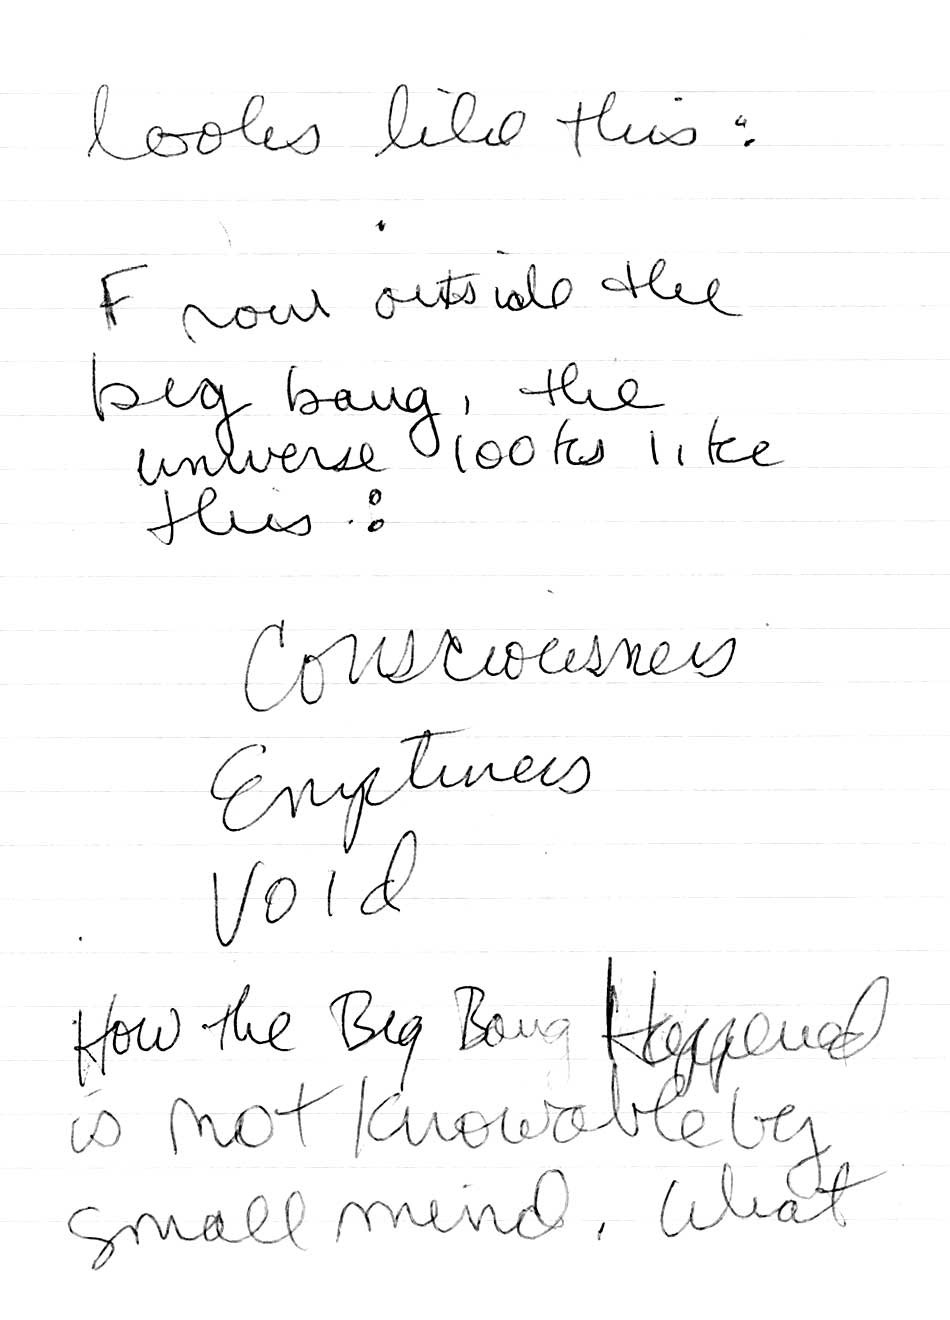 looks like this:
From outside the
big bang, the
universe looks like
this:
Consciousness
Emptiness
Void
How the Big Bang Happened
is not knowable by
small mind. What